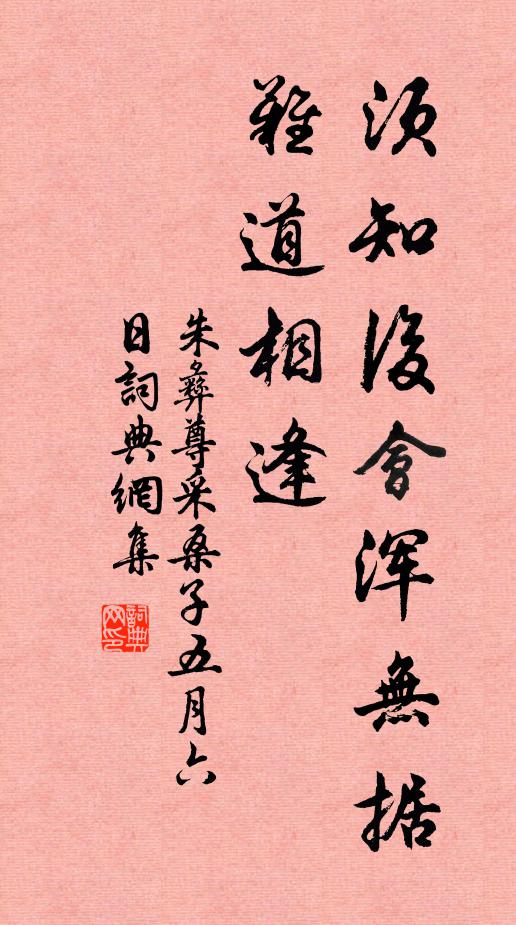 须知後會渾無据
難道相逢
朱彝尊采桑子五月六
日詞典網集
詞典
网印